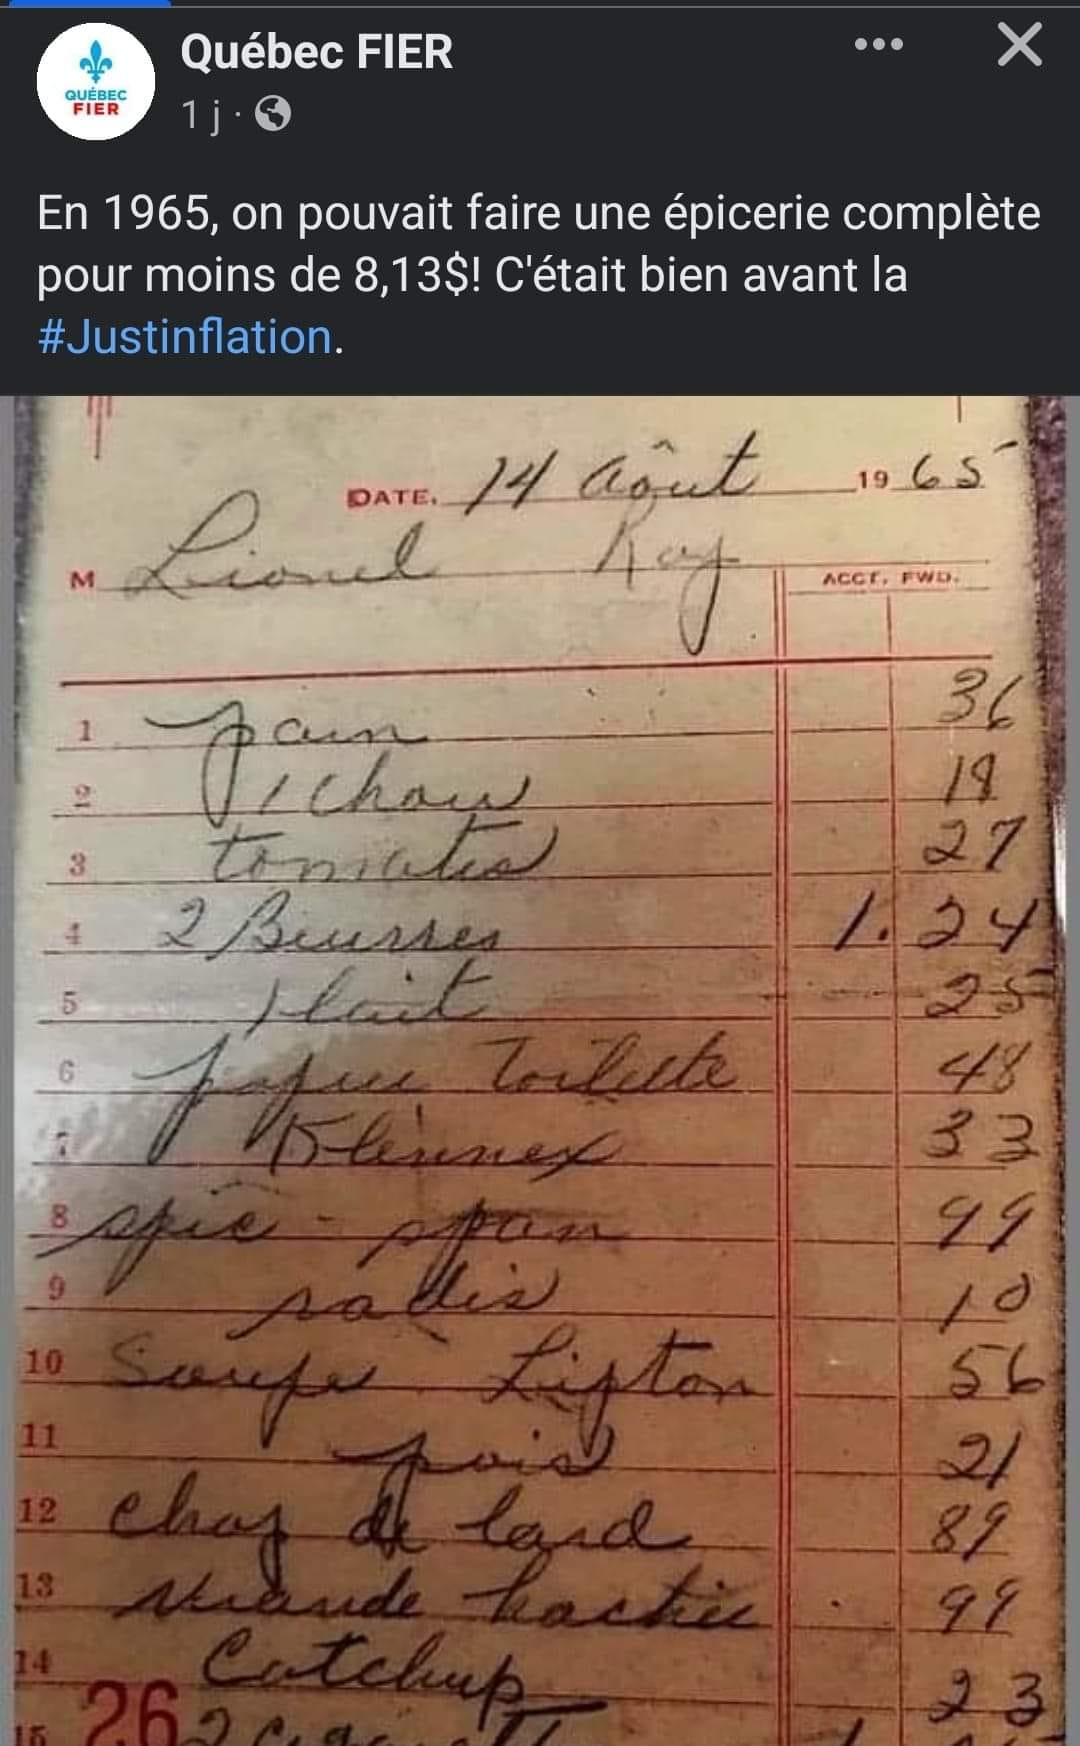 QUÉBEC
FIER
Québec FIER
1 j ·
En 1965, on pouvait faire une épicerie complète
pour moins de 8,13$! C'était bien avant la
#Justinflation.
DATE. 14 Aôut 1965
M Lionel Roy
ACCT. FWD.
1 pain 36
2 1 chou 19
3 tomates 27
4 2 Beurres 1.24
5 1 lait 25
6 papier Toilette 48
7 Klennex 33
8 spic - span 99
9 radis 10
10 Soupe Lipton 56
11 pois 21
12 chop de lard 89
13 viande hachée 99
14 Catchup 23
15 2
26